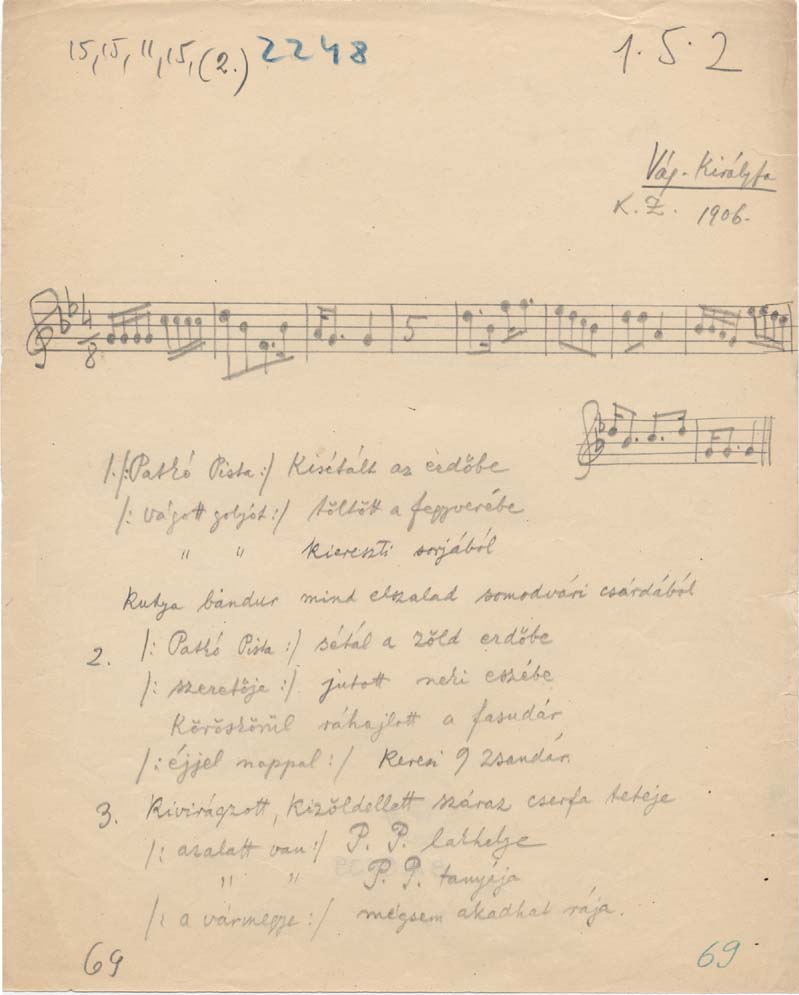 15, 15, 11, 15, (2.) 2248 1.5.2
Vág-Királyfa
K. Z. 1906.
4
8
5
1. /: Patkó Pista :/ Kisétált az erdőbe
/: vágott golyót :/ töltött a fegyverébe
" " kiereszti sorjából
Kutya bándur mind elszalad somodvári csárdából
2. /: Patkó Pista :/ sétál a zöld erdőbe
/: szeretője :/ jutott neki eszébe
Köröskörül ráhajlott a fasudár
/: éjjel nappal :/ keresi 9 zsandár.
3. Kivirágzott, kizöldellett száraz cserfa teteje
/: azalatt van :/ P. P. lakhelye
" " P. P. tanyája
/: a vármegye :/ mégsem akadhat rája.
69 69